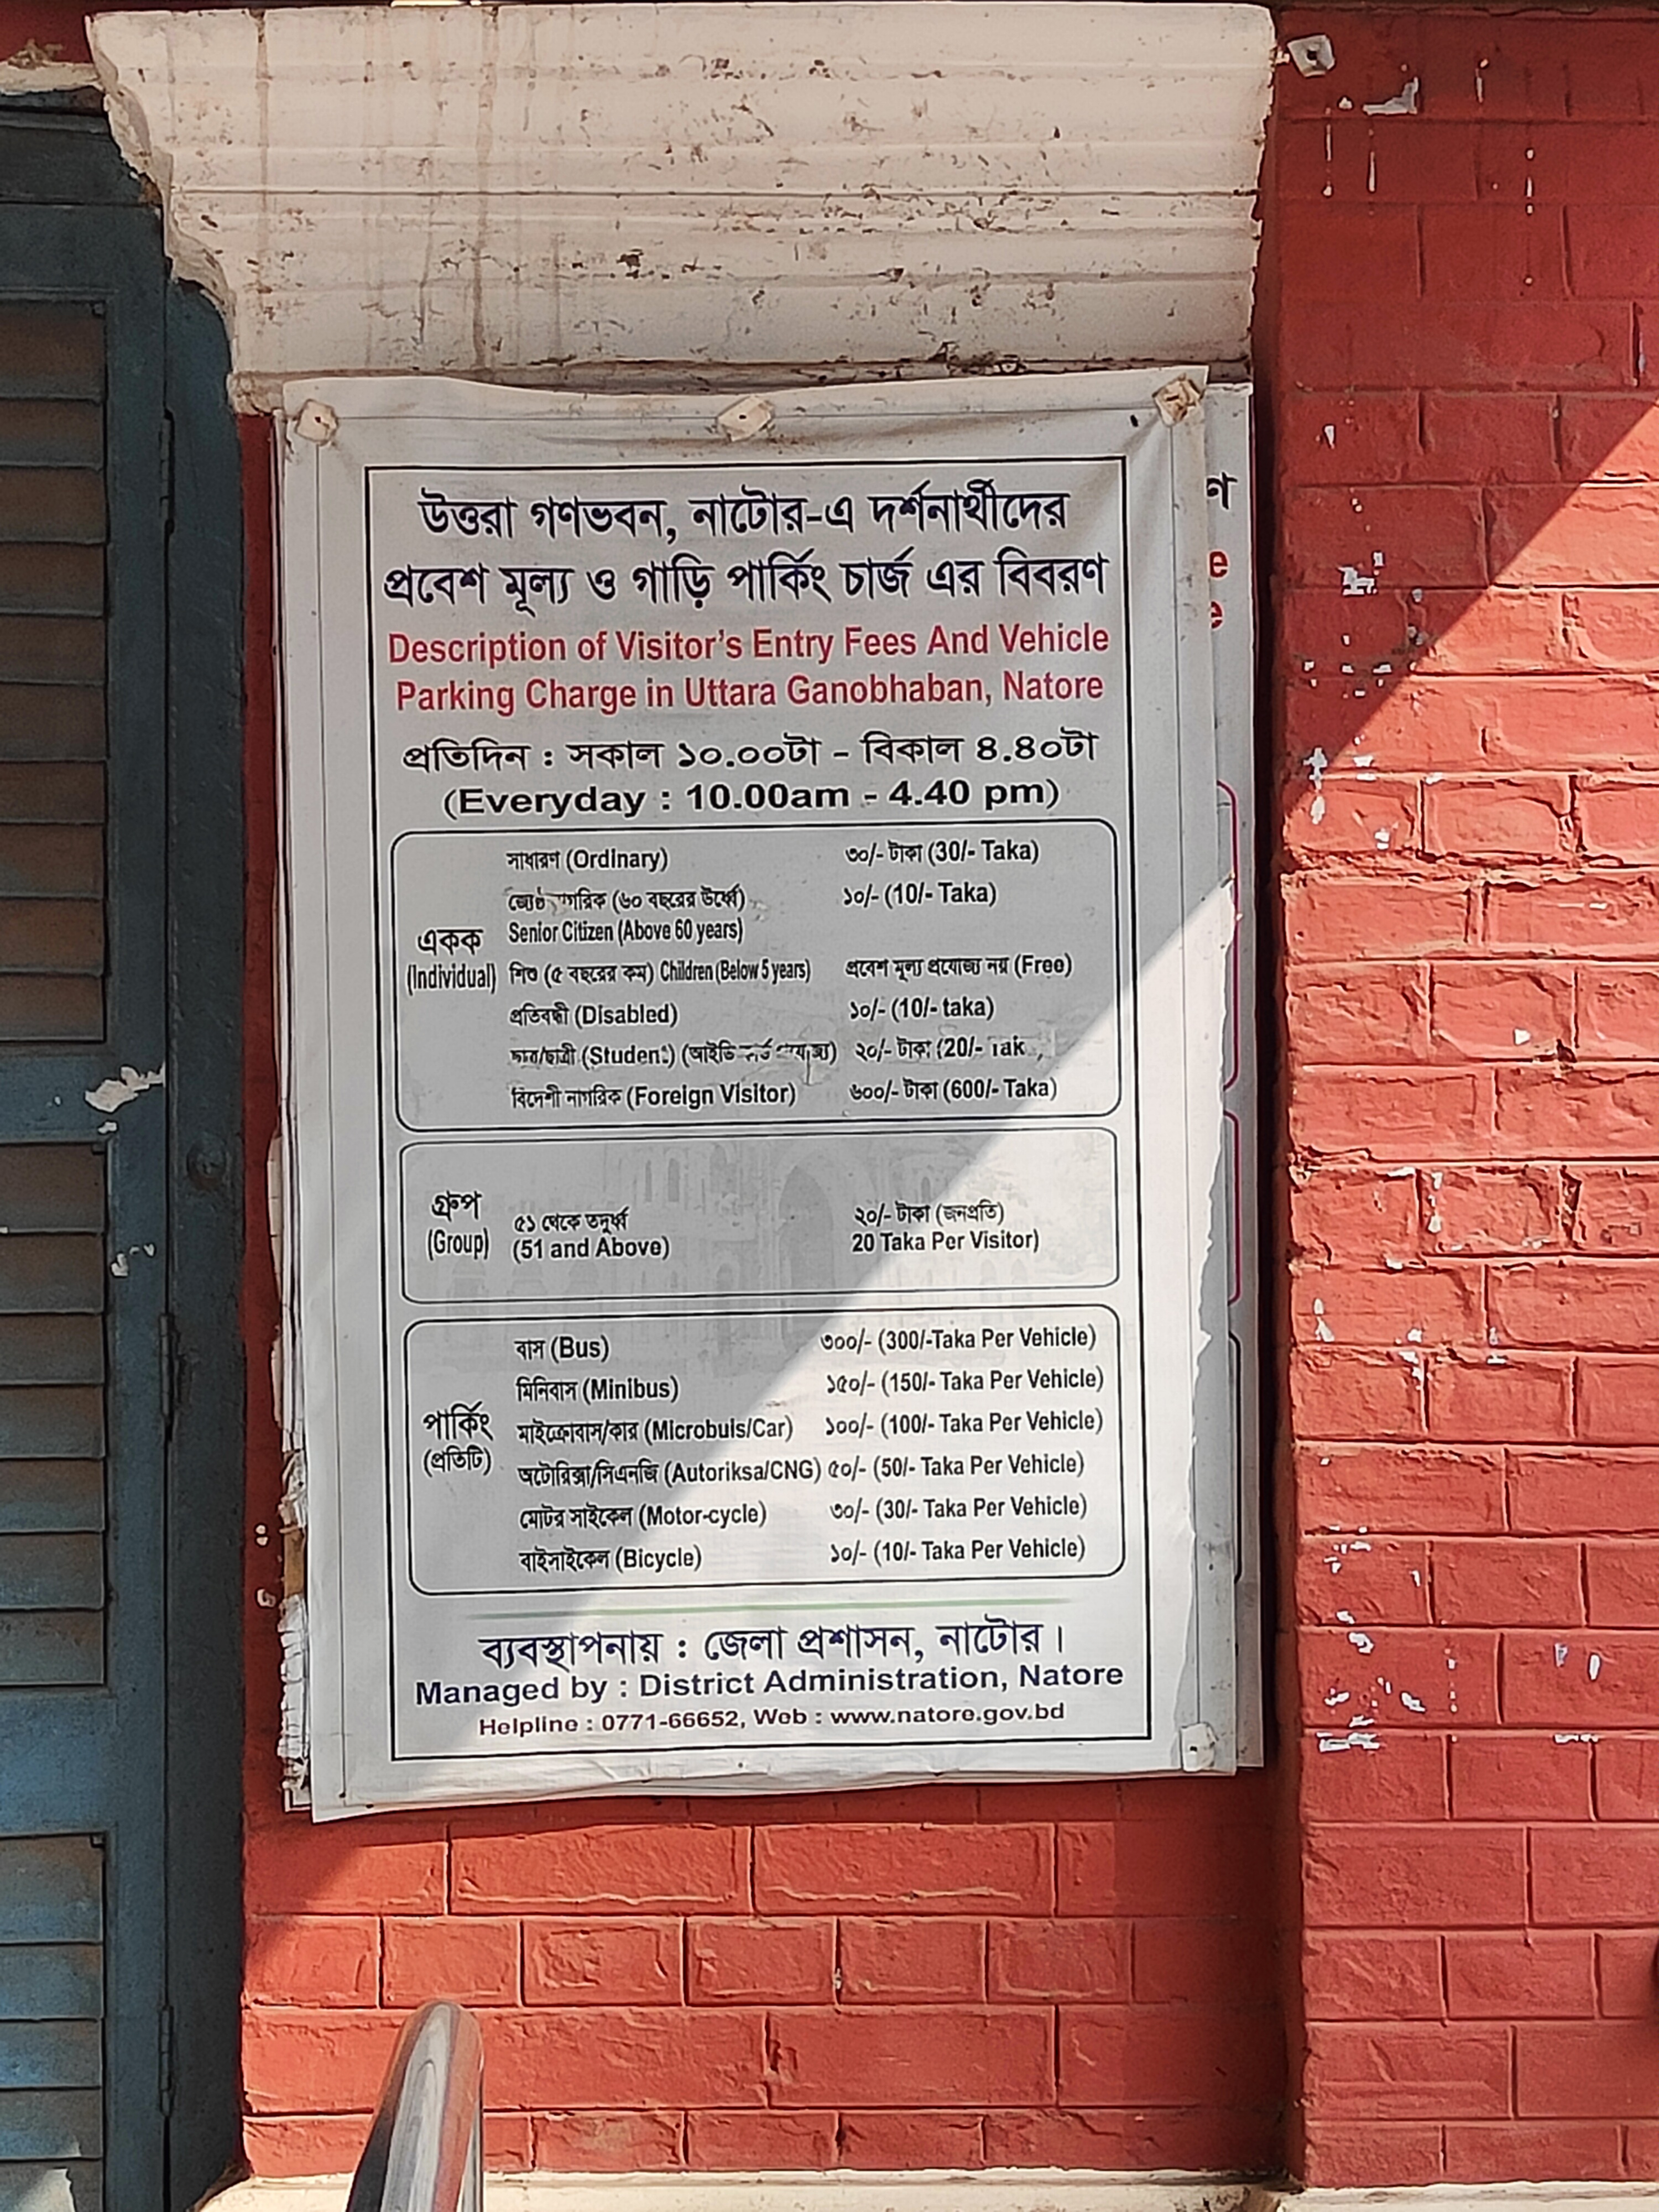 উত্তরা গণভবন, নাটোর-এ দর্শনার্থীদের
প্রবেশ মূল্য ও গাড়ি পার্কিং চার্জ এর বিবরণ
Description of Visitor's Entry Fees And Vehicle
Parking Charge in Uttara Ganobhaban, Natore
প্রতিদিন : সকাল ১০.০০টা - বিকাল ৪.৪০টা
(Everyday : 10.00am - 4.40 pm)
একক
(Individual)
সাধারণ (Ordinary) ৩০/- টাকা (30/- Taka)
(৬০ বছরের উর্ধ্বে) ১০/- (10/- Taka)
Senior Citizen (Above 60 years)
শিশু (৫ বছরের কম) Children (Below 5 years) প্রবেশ মূল্য প্রযোজ্য নয় (Free)
প্রতিবন্ধী (Disabled) ১০/- (10/- taka)
(Student) (আইডি ২০/- টাকা (20/-
বিদেশী নাগরিক (Foreign Visitor) ৬০০/- টাকা (600/- Taka)
গ্রুপ
(Group)
৫১ থেকে তদুর্ধ্ব ২০/- টাকা (জনপ্রতি)
(51 and Above) 20 Taka Per Visitor)
পার্কিং
(প্রতিটি)
বাস (Bus) ৩০০/- (300/-Taka Per Vehicle)
মিনিবাস (Minibus) ১৫০/- (150/- Taka Per Vehicle)
মাইক্রোবাস/কার (Microbuls/Car) ১০০/- (100/- Taka Per Vehicle)
অটোরিক্সা/সিএনজি (Autoriksa/CNG) ৫০/- (50/- Taka Per Vehicle)
মোটর সাইকেল (Motor-cycle) ৩০/- (30/- Taka Per Vehicle)
বাইসাইকেল (Bicycle) ১০/- (10/- Taka Per Vehicle)
ব্যবস্থাপনায় : জেলা প্রশাসন, নাটোর।
Managed by : District Administration, Natore
Helpline : 0771-66652, Web : www.natore.gov.bd